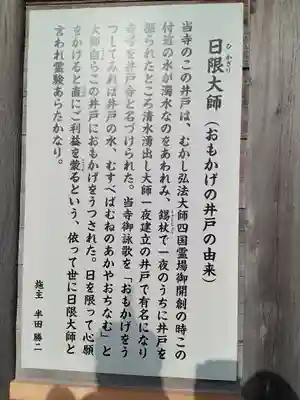 日限大師(おもかげの井戸の由来)
ひかぎり
当寺のこの井戸は、むかし弘法大師四国霊場御開創の時この
付近の水が濁水なのをあわれみ、錫杖で一夜のうちに井戸を
掘られたところ清水湧出し大師一夜建立の井戸で有名になり
寺号を井戸寺と名づけられた。当寺御詠歌を「おもかげをう
つしてみれば井戸の水、むすべばむねのあかやおちなむ」と
大師自らこの井戸におもかげをうつされた。日を限って心願
をかけると直にご利益を蒙るという、依って世に日限大師と
言われ霊験あらたかなり。
施主 半田 勝二